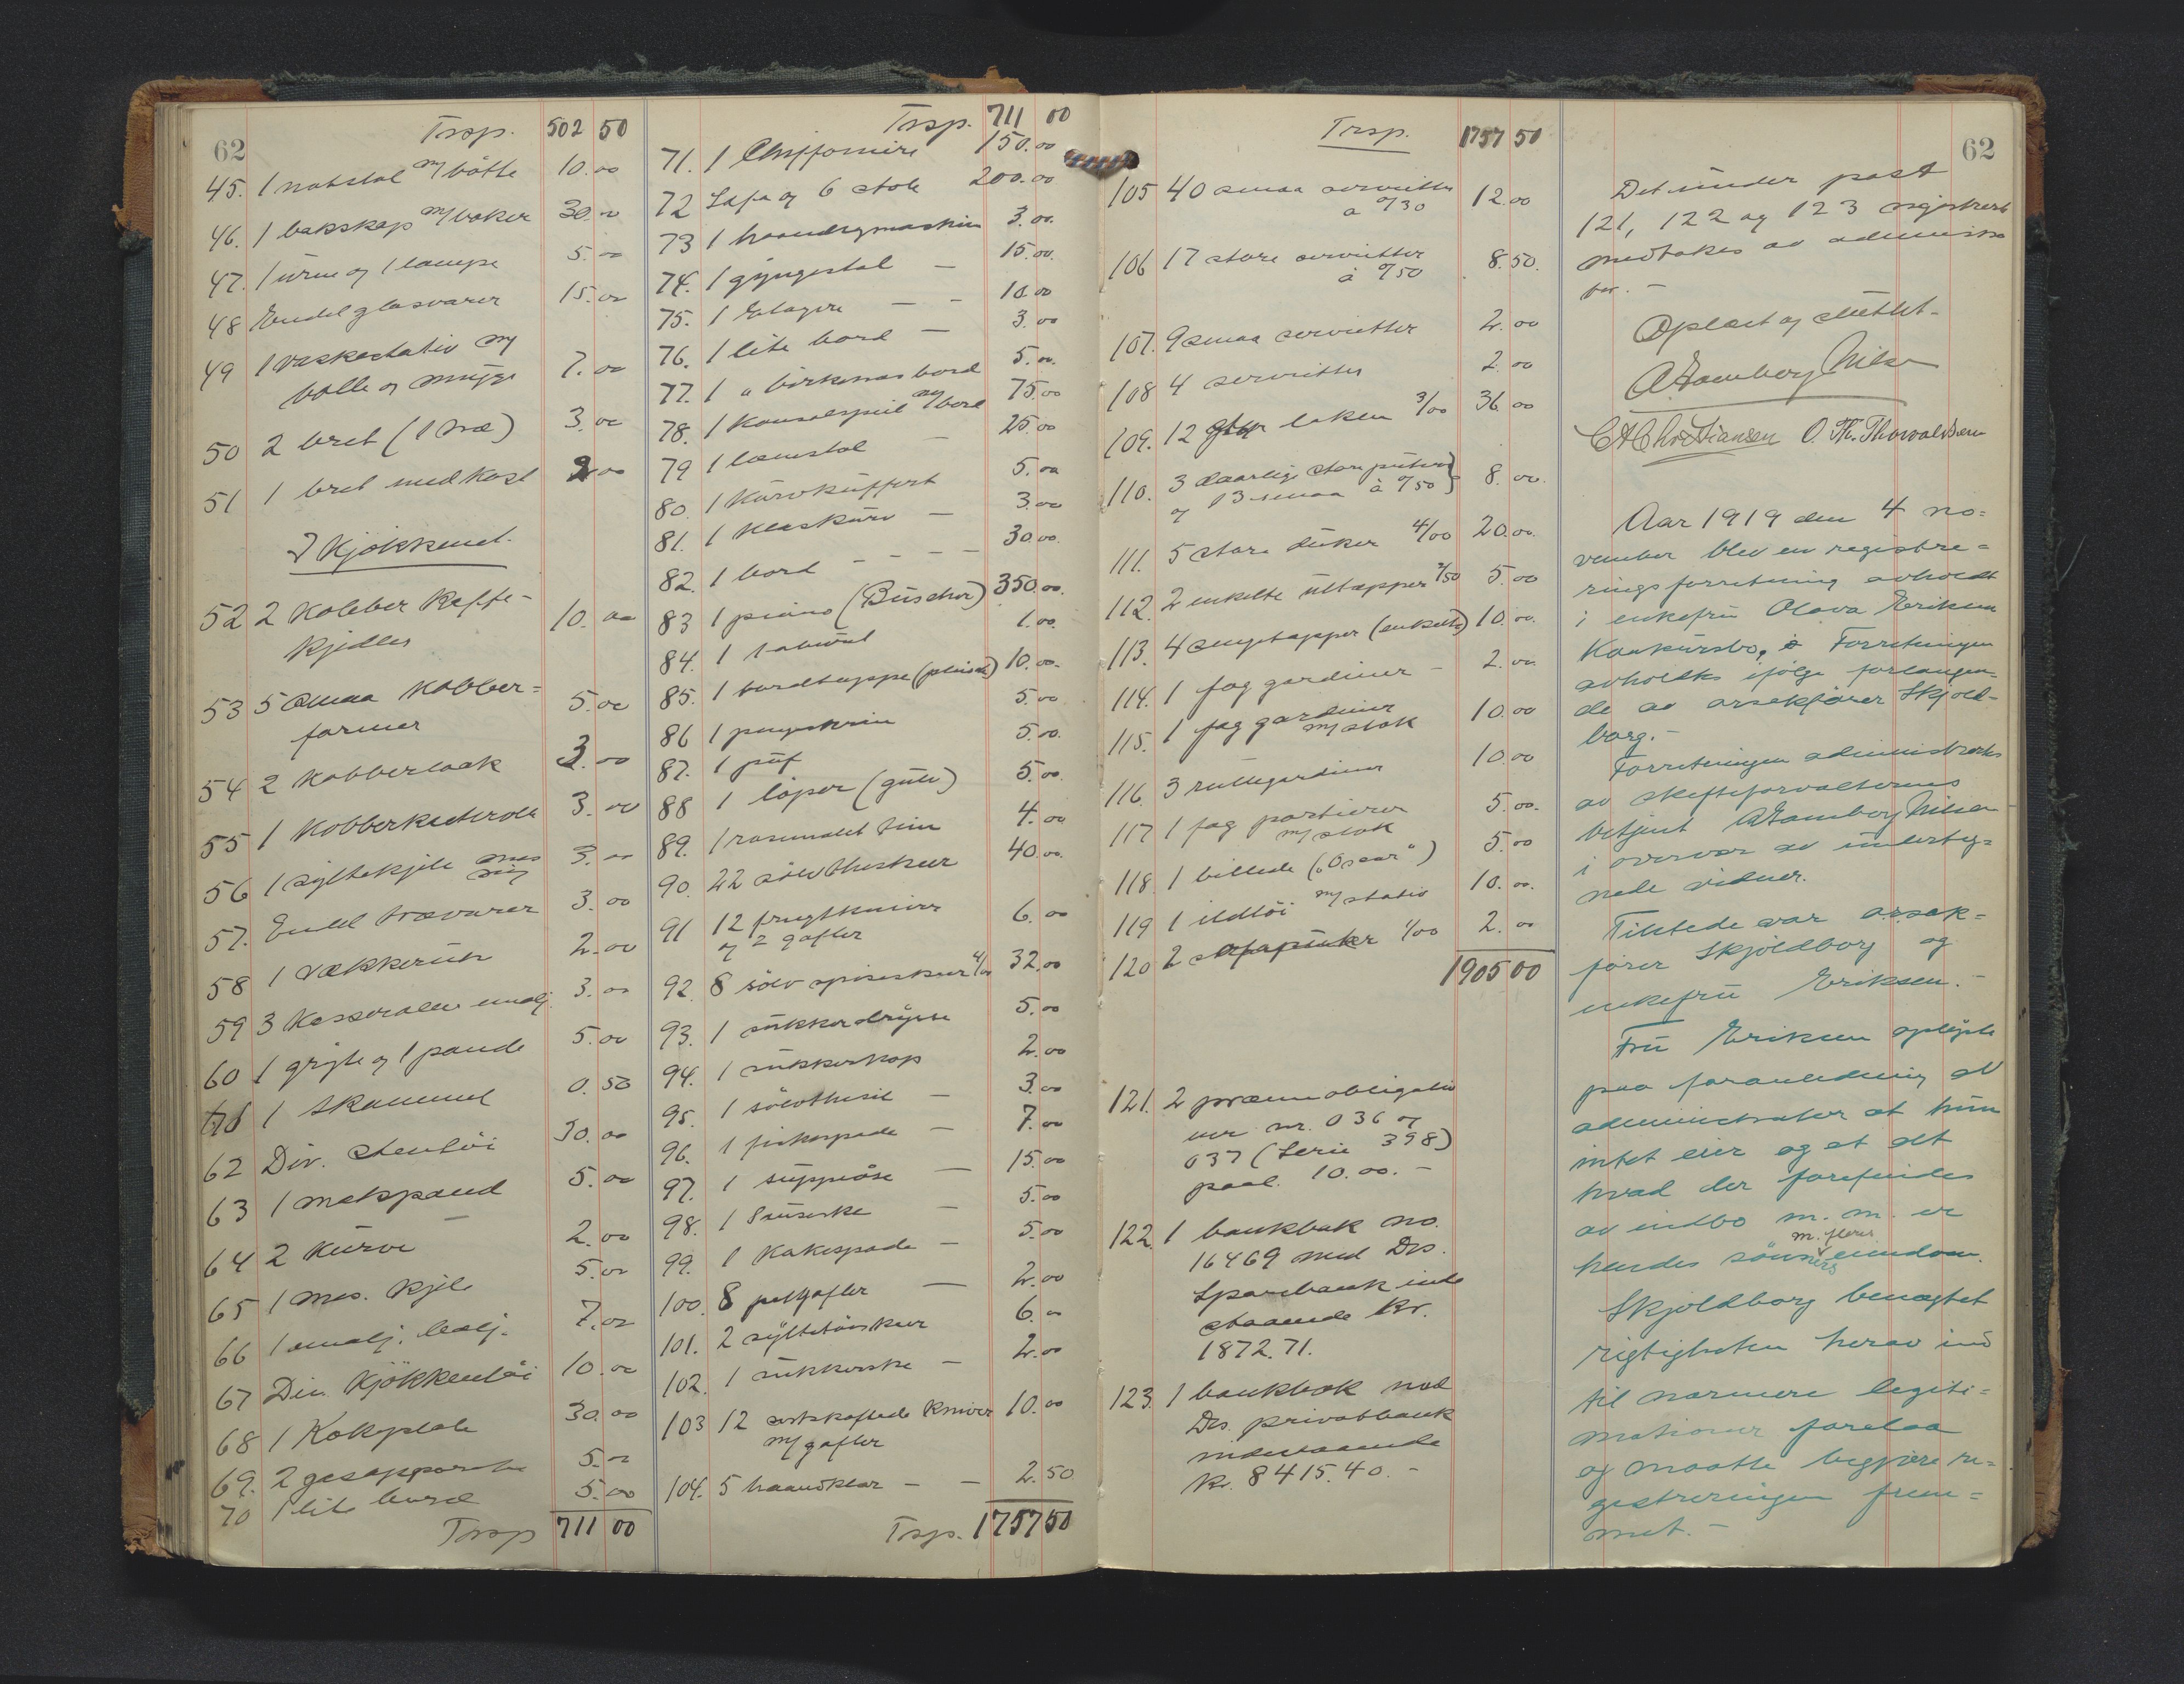 62
Trsp. 502 50
45. 1 natstol m/ bøtte 10.00
46. 1 bokskap m/ bøker 30.00
47. 1 urne og 1 lampe 5.00
48 Endel glasvarer 15.00
49 1 vaskestativ m/
bolle og mugge 7.00
50 2 bret (1 træ) 3.00
51 1 bret med kost 2.00
I Kjøkkenet.
52 2 Kobber Kaffe-
kjedler 10.00
53 5 smaa Kobber=
former 5.00
54 2 Kobberlaak 3.00
55 1 Kobberkasterolle 3.00
56 1 syltekjele mes
sing 3.00
57. Endel trævarer 3.00
58 1 vækkerur 2.00
59 3 Kasseroller emalj. 3.00
60 1 gryte og 1 pande 5.00
61 1 skammel 0.50
62 Div. stentøi 30.00
63 1 melspand 5.00
64 2 Kurve 2.00
65 1 mes. kjele 5.00
66 1 emalj. balj. 7.00
67 Div. Kjøkkentøi 10.00
68 1 Kokeplate 30.00
69. 2 gasapparater 5.00
70 1 lite bord 5.00
Trsp 711 00
Trsp. 711 00
71. 1 Chiffoniere 150.00
72 Sofa og 6 stole 200.00
73 1 haandsymaskin 3.00
74. 1 gyngestol — 15.00
75. 1 Etagere — — 10.00
76. 1 lite bord — 3.00
77. 1 " birkenes bord 5.00
78. 1 Konsolspeil m/ bord 75.00
79 1 lænestol — 25.00
80. 1 Kurvkuffert 5.00
81. 1 Kleskurv — 3.00
82. 1 bord — — — 30.00
83 1 piano (Büscher) 350.00
84. 1 taburet 1.00
85. 1 bordteppe (plysch) 10.00
86 1 pengeskrin 5.00
87. 1 puf 5.00
88 1 løper (gulv) 5.00
89. 1 rosemalet tine 4.00
90. 22 sølv theskeer 40.00
91 12 frugtkniver
og 2 gafler 6.00
92. 8 sølv spiseskeer 4/00 32.00
93. 1 sukkerdrysse 5.00
94. 1 sukkerkop 2.00
95. 1 sølvthesil — 3.00
96. 1 fiskespade — 7.00
97. 1 suppeøse — 15.00
98. 1 sauseske — 5.00
99. 1 Kakespade — 5.00
100. 8 gafler — 2.00
101. 2 syltetøiskeer 6.00
102. 1 sukkerske — 2.00
103 12 sortskaftede kniver
m/ gafler 10.00
104. 5 haandklær — — 2.50
Trsp. 1757 50
Trsp. 1757 50
105 40 smaa servietter
a 0/30 12.00
106 17 store servietter
à 0/50 8.50.
107. 9 smaa servietter 2.00
108 4 servietter 2.00
109. 12 laken 3/00 36.00
110. 3 daarlige store putevar
og 13 smaa à 0/50 8.00.
111. 5 store duker 4/00 20.00.
112. 2 enkelte ultæpper 2/50 5.00
113. 4 sengetæpper (enkelte) 10.00.
114. 1 fag gardiner — 2.00
115. 1 fag gardiner
m/ stok 10.00
116. 3 rullegardiner 10.00
117 1 fag portierer
m/ stok 5.00.
118. 1 billede ("Oscar") 5.00
119 1 ildtøi m/ stativ 10.00.
120 2 sofaputer 1/00 2.00
1905 00
121. 2 præmieobligatio
ner nr. 036 og
037 (Serie 398)
paal. 10.00.—
122. 1 bankbok no.
16469 med Drs.
Sparebank inde
staaende Kr.
1872.71.
123. 1 bankbok med
Drs. privatbank
indestaaende
Kr. 8415.40.—
62
Det under post
121, 122 og 123 registrerte
medtokes av administra
tor.—
Oplest og sluttet.
A Homberg Nilsen
C A Christiansen O. Th. Thorvaldsen
Aar 1919 den 4 no=
vember blev en registre=
ringsforretning avholdt
i enkefru Olava Eriksens
Konkursbo. Forretningen
avholdtes ifølge forlangen-
de av orsakfører Skjold-
borg.—
Forretningen administrertes
av skifteforvalterens
betjent A Homberg Nilsen
i overvær av underteg=
nede vidner.
Tilstede var orsak=
fører Skjoldborg og
enkefru Eriksen.—
Fru Eriksen oplyste
paa foranledning av
administrator at hun
intet eier og at alt
hvad der forefindes
av indbo m.m. er
m. fleres
hendes sønners eiendom.
Skjoldborg benegtet
rigtigheten herav ind
til nærmere legiti=
mationer forelaa
og maatte begjære re=
gistreringen frem=
met.—